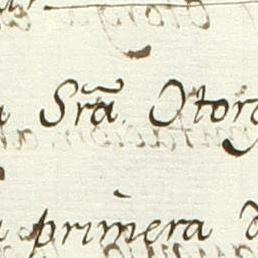 Srã. Otorg
primera